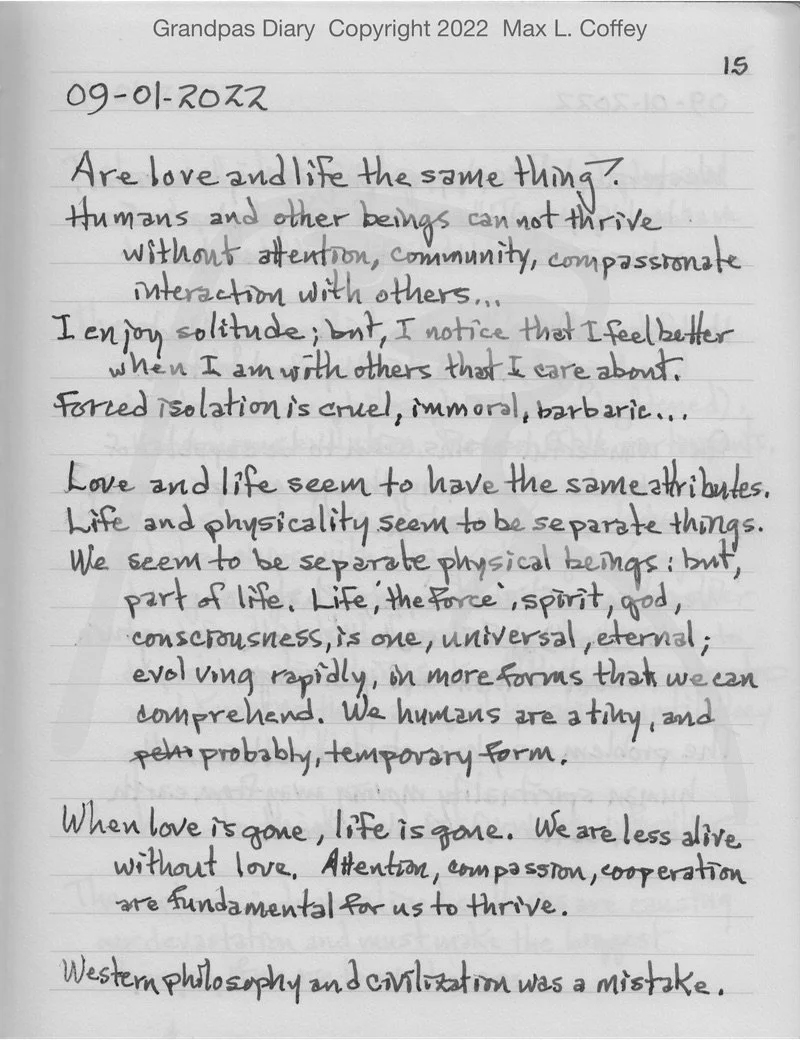 Grandpas Diary Copyright 2022 Max L. Coffey
15
09-01-2022
Are love and life the same thing?
Humans and other beings can not thrive
without attention, community, compassionate
interaction with others...
I enjoy solitude; but, I notice that I feel better
when I am with others that I care about.
Forced isolation is cruel, immoral, barbaric...
Love and life seem to have the same attributes.
Life and physicality seem to be separate things.
We seem to be separate physical beings: but,
part of life. Life, 'the force', spirit, god,
consciousness, is one, universal, eternal;
evolving rapidly, in more forms that we can
comprehend. We humans are a tiny, and
probably, temporary form.
When love is gone, life is gone. We are less alive
without love. Attention, compassion, cooperation
are fundamental for us to thrive.
Western philosophy and civilization was a mistake.